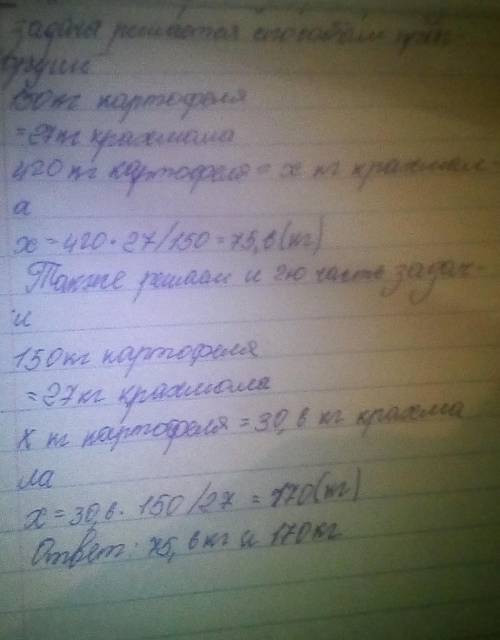 задача решается способом проп-
орции
150кг картофеля
=27кг крахмола
420 кг картофеля = х кг крахмал-
а
х=420·27/150=75,6(кг)
Также решаем и 2ю часть задач-
и
150кг картофеля
=27кг крахмола
х кг картофеля = 30,6 кг крахма
ла
х=30,6·150/27 = 170(кг)
Ответ: 75,6кг и 170кг